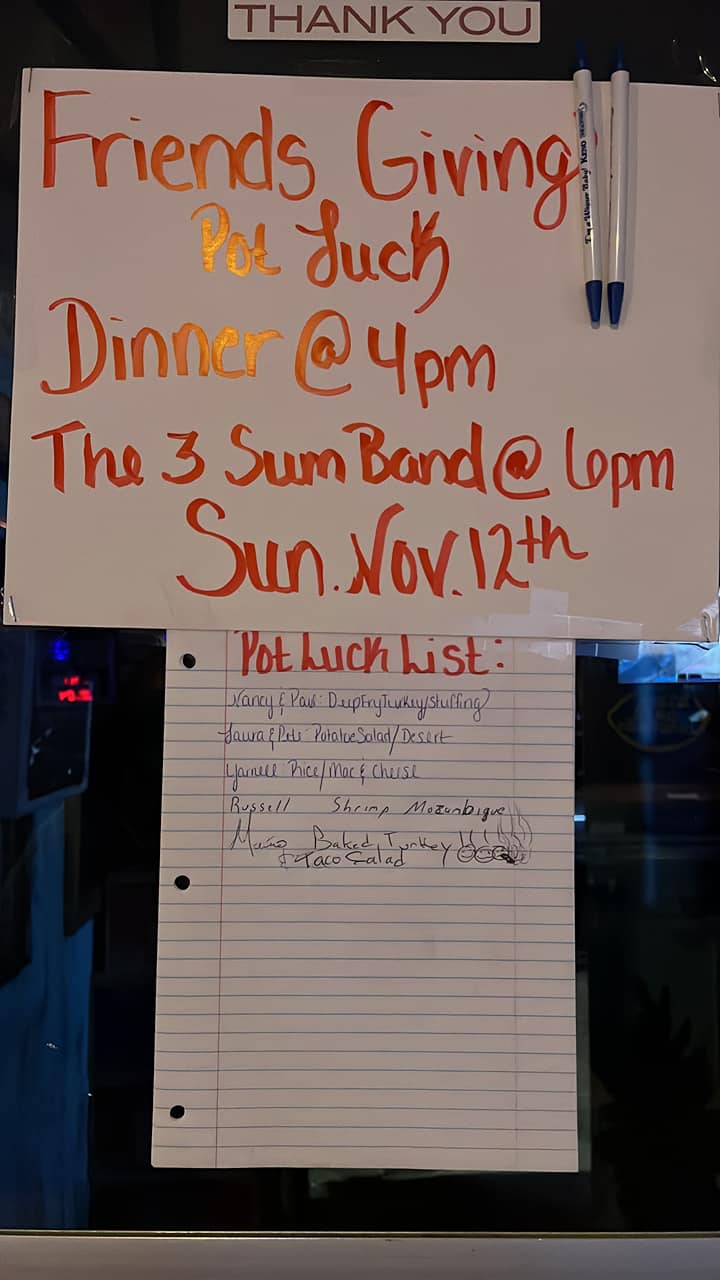 THANK YOU
Friends Giving
Pot Luck
Dinner @ 4pm
The 3 Sum Band @ 6pm
Sun. Nov. 12th
Pot Luck List:
Nancy & Paul: DeepFryTurkey/Stuffing
Laura & Pete: PotatoeSalad/Desert
Yarnell Rice/Mac & Cheese
Russell Shrimp Mozambique
Baked Turkey!!!
& Taco Salad